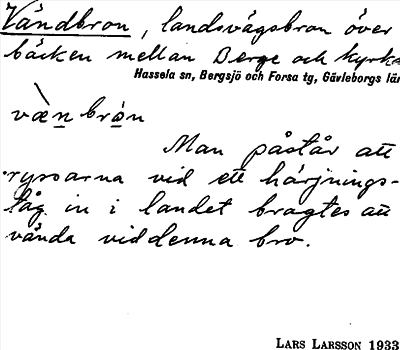 Vändbron, landsvägsbron över
bäcken mellan Berge och kyrka
Hassela sn, Bergsjö och Forsa tg, Gävleborgs län
væn brón
Man påstår att
ryssarna vid ett härjnings-
tåg in i landet bragtes att
vända vid denna bro.
LARS LARSSON 1933